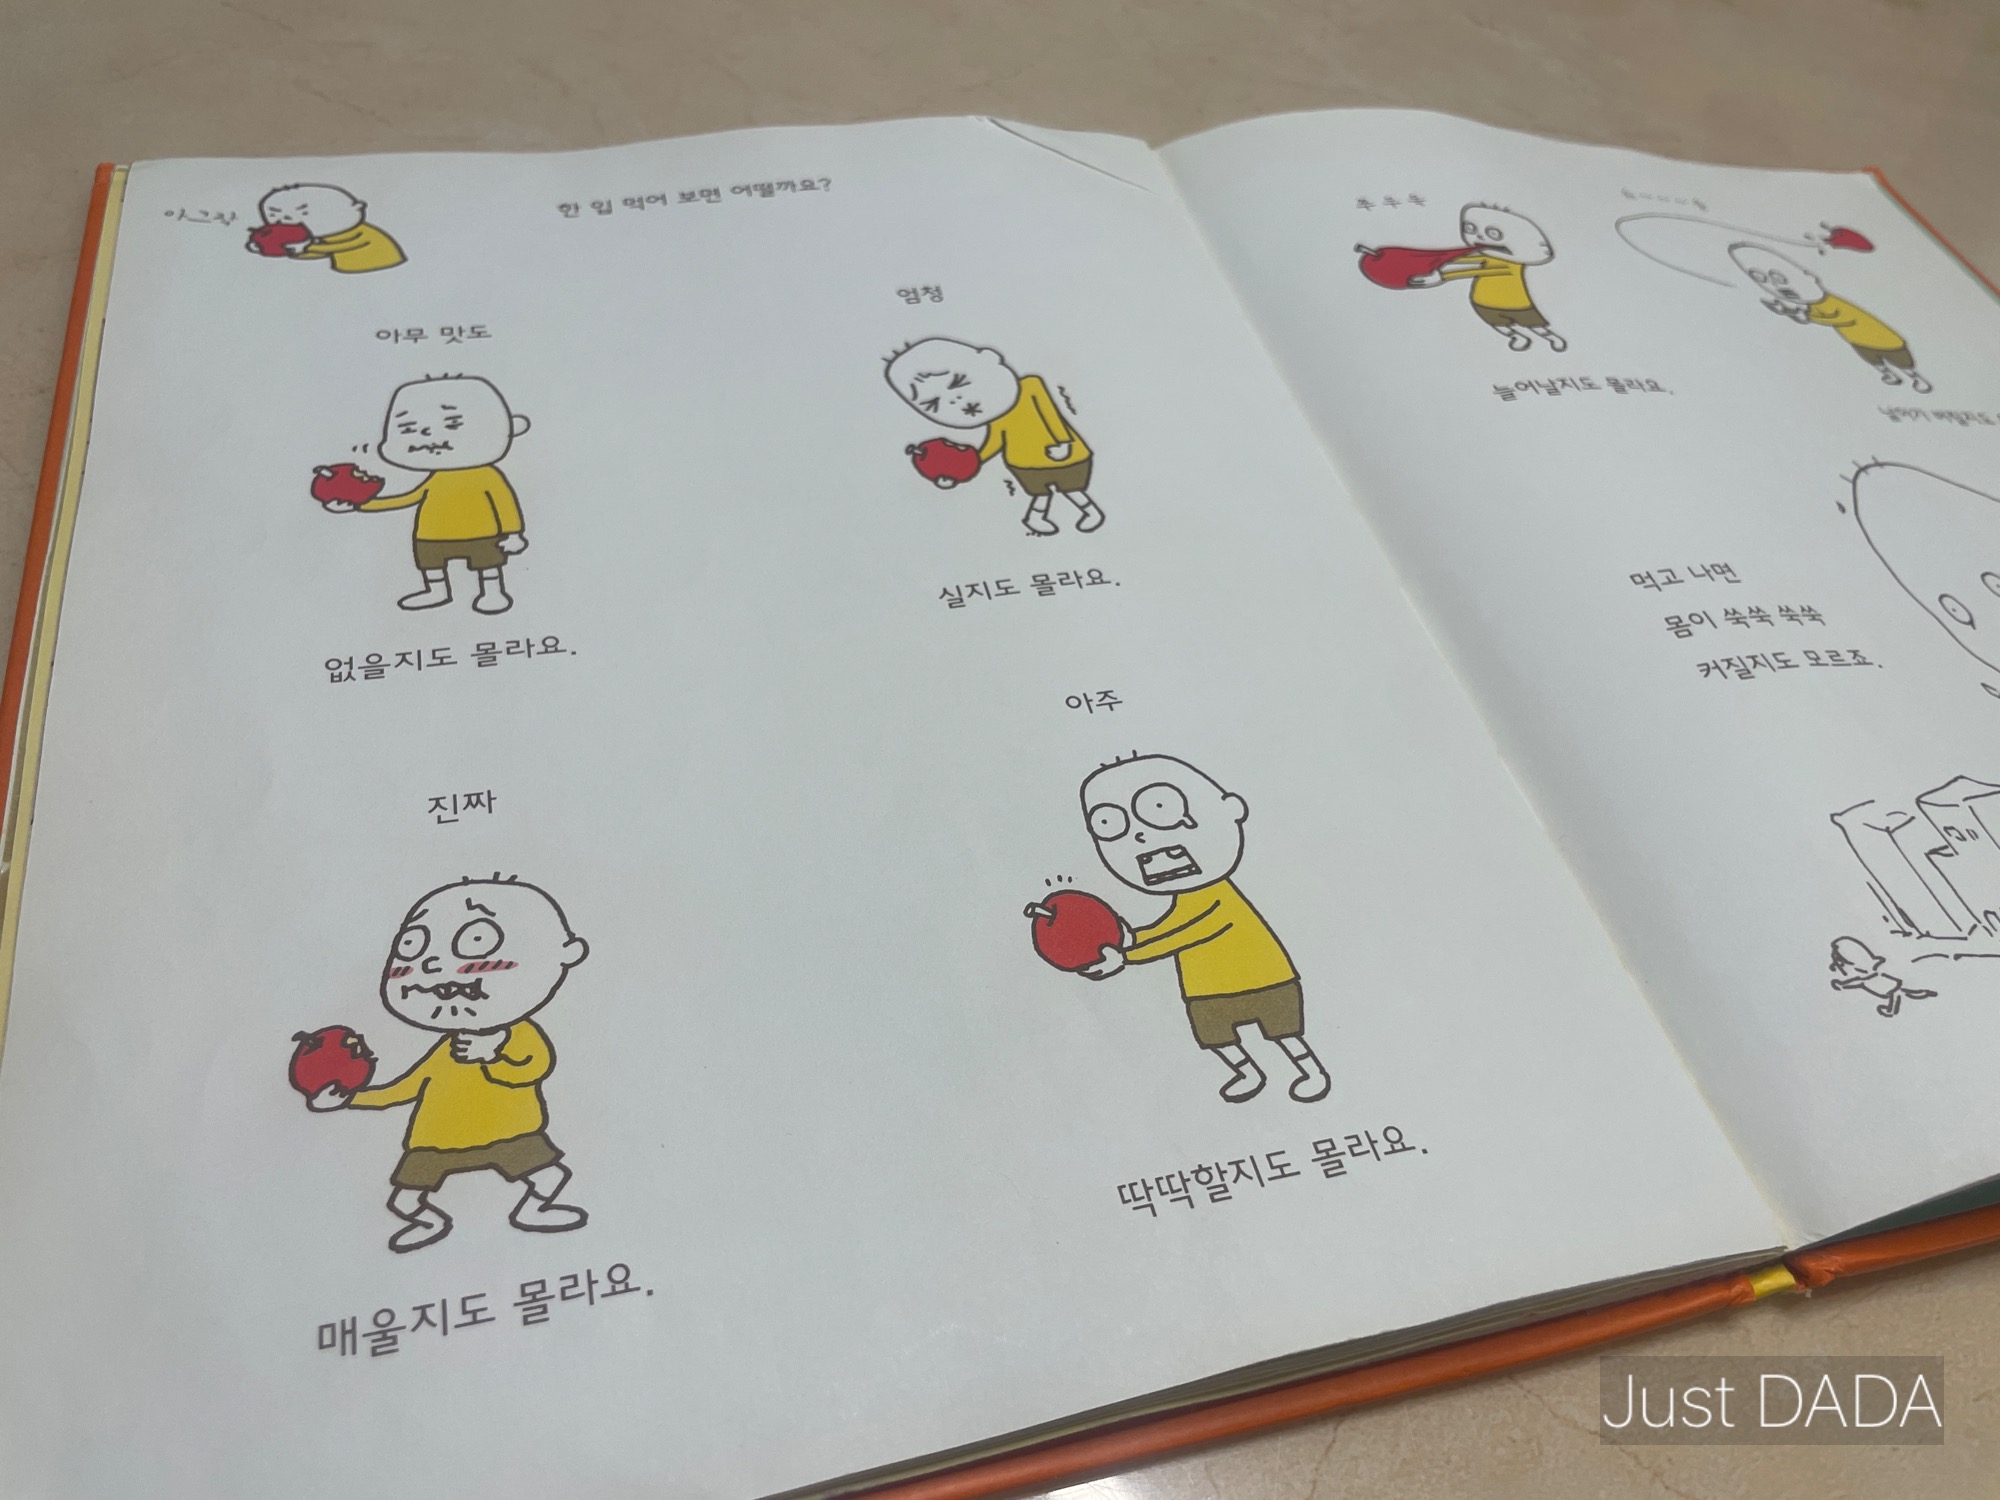 한 입 먹어 보면 어떨까요?
아무 맛도
없을지도 몰라요.
엄청
실지도 몰라요.
진짜
매울지도 몰라요.
아주
딱딱할지도 몰라요.
쭈 우 욱
늘어날지도 몰라요.
먹고 나면
몸이 쑥쑥 쑥쑥
커질지도 모르죠.
Just DADA